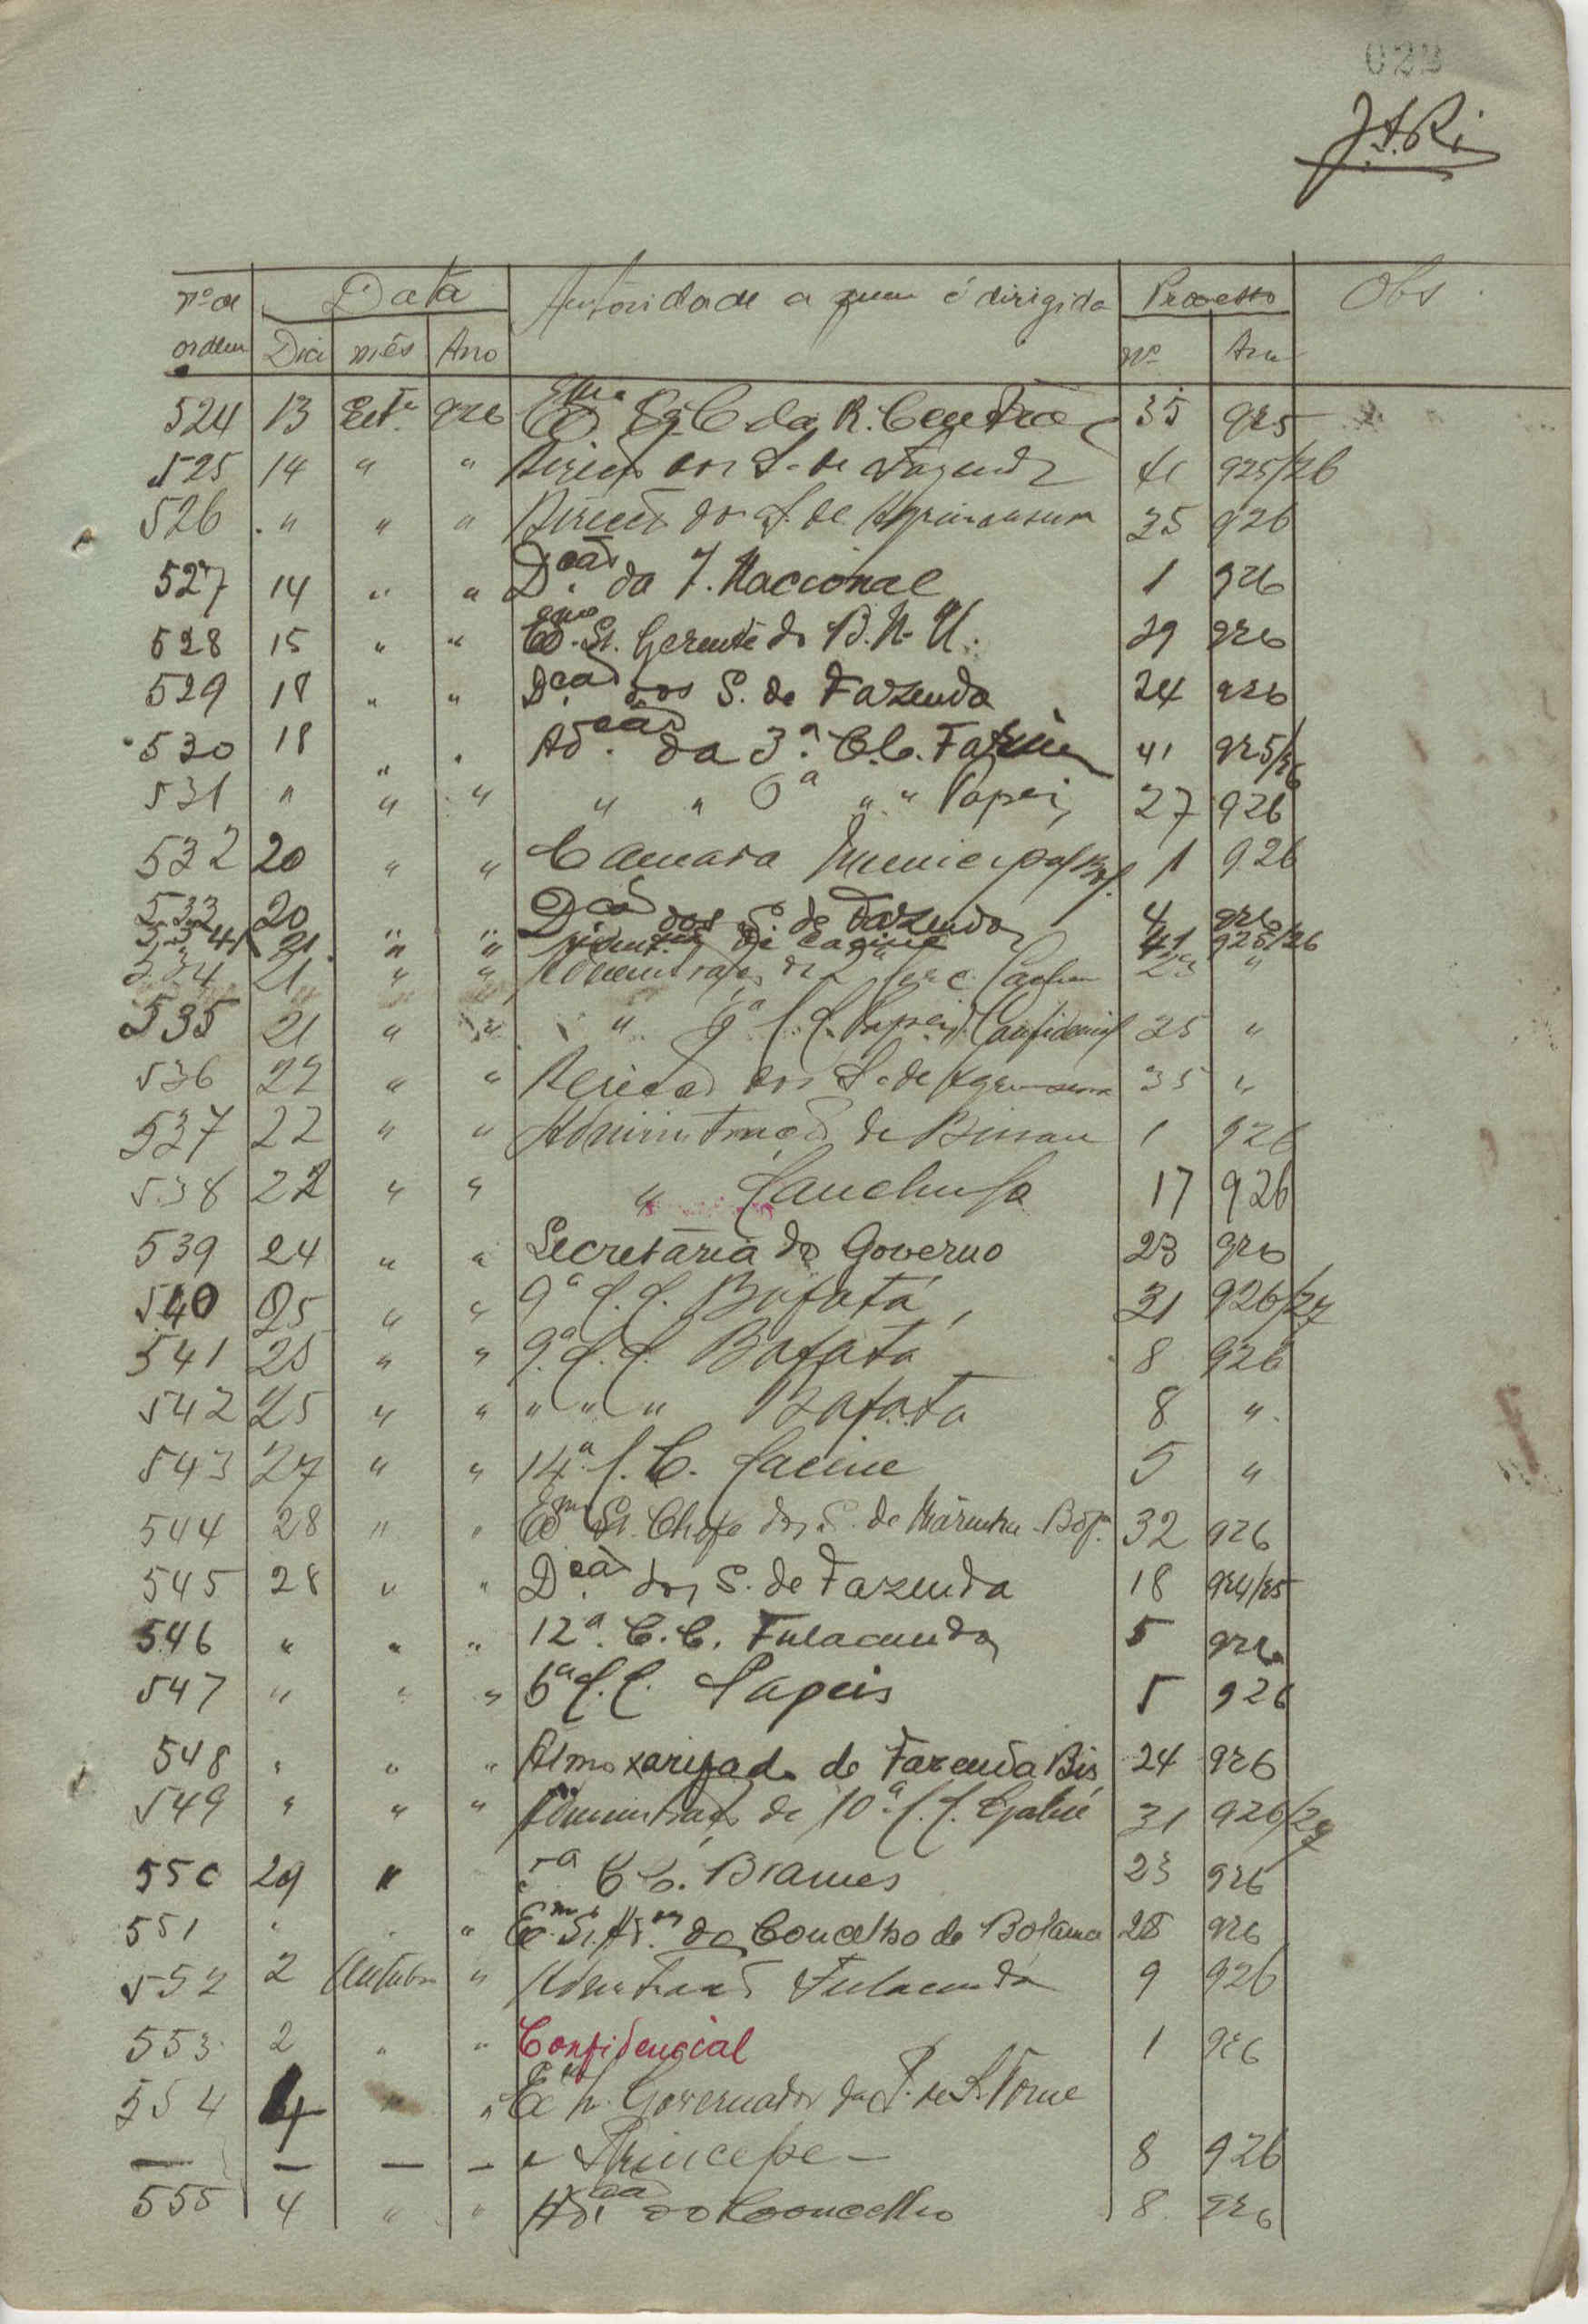 023
J.A.Ri
nº de Data Autoridade a quem é dirigida Processo Obs.
ordem Dia mês Ano nº Ano
524 13 Setº 926 Exmo Sr. C. da R. Central 35 925
525 14 " " Direcção dos S. de Fazenda 41 925/26
526 " " " Direcção dos S. de Agrimensura 35 926
527 14 " " Dcção da I. Nacional 1 926
528 15 " " Exmo Sr. Gerente do B. N. U. 29 926
529 18 " " Dcção dos S. de Fazenda 24 926
530 18 " " Adcão da 3ª C. C. Farim 41 925/26
531 " " " " " 6ª " " Papeis 27 926
532 20 " " Camara Municipal Bol. 1 926
533 20 " " Dcção dos S. de Fazenda 4 926
21 " " de Cacine 41 925/26
534 21 " " Administração da C. C. Cacheu 23 "
535 21 " " " 6ª C. C. Papeis Confidencial 25 "
536 22 " " Direcção dos S. de Agrimensura 35 "
537 22 " " Administração de Bissau 1 926
538 22 " " " Canchungo 17 926
539 24 " " Secretaria do Governo 23 926
540 25 " " 9ª C. C. Bafatá 31 926/27
541 25 " " 9ª C. C. Bafatá 8 926
542 25 " " " " " Bafata 8 "
543 27 " " 14ª C. C. Cacine 5 "
544 28 " " Exmo Sr. Chefe dos S. de Marinha - Bol. 32 926
545 28 " " Dcção dos S. de Fazenda 18 924/25
546 " " " 12ª C. C. Fulacunda 5 926
547 " " " 6ª C. C. Papeis 5 926
548 " " " Almoxarifado de Fazenda Bis 24 926
549 " " " Administração da 10ª C. C. Gabú 31 926/27
550 29 " 5ª C. C. Brames 23 926
551 " " " Exmo Sr. Admor do Concelho de Bolama 28 926
552 2 Outubro " Administração Fulacunda 9 926
553 2 " " Confidencial 1 926
554 4 " " Exmo Sr. Governador da P. de S. Tome
— — — — e Principe — 8 926
555 4 " " Adcão do Concelho 8 926